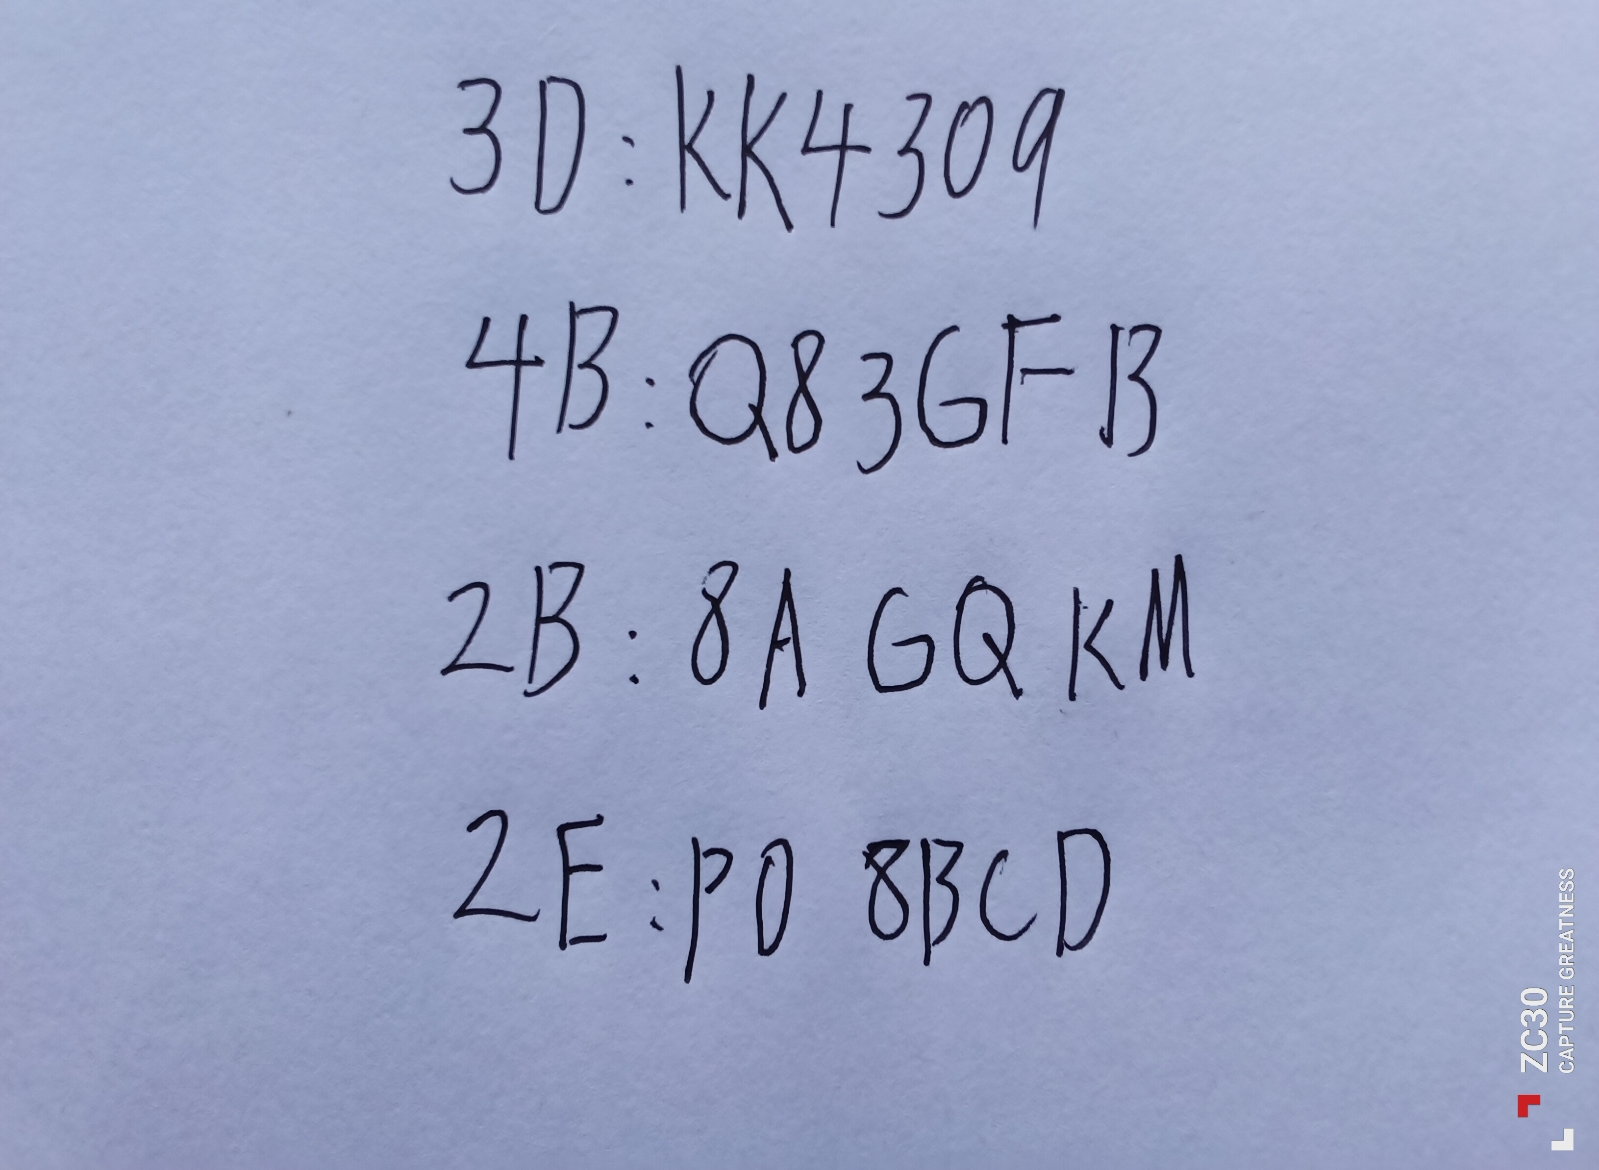 3D: KK4309
4B: Q83GFB
2B: 8A GQ KM
2E: P0 8BCD
ZC30
CAPTURE GREATNESS